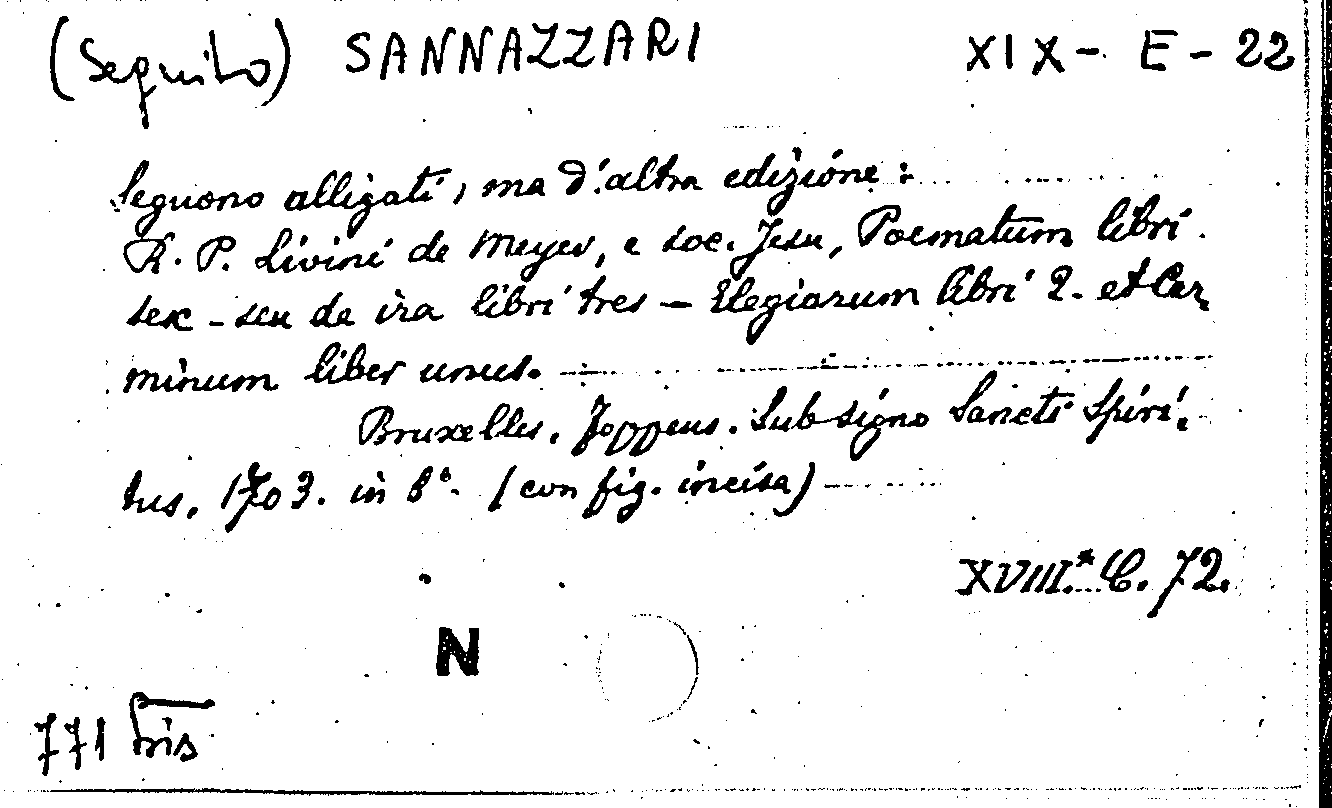 (Seguito) SANNAZZARI XIX - E - 22
Seguono alligati, ma d'altra edizione:
R. P. Livini de Meyer, e soc. Jesu, Poematum libri
sex - seu de ira libri tres - Elegiarum libri 2. et Car
minum liber unus.
Bruxelles. Foppens. Sub signo Sancti Spiri,
tus, 1703. in 8°. (con fig. incisa)
XVIII.* C. 72.
N
771 bis